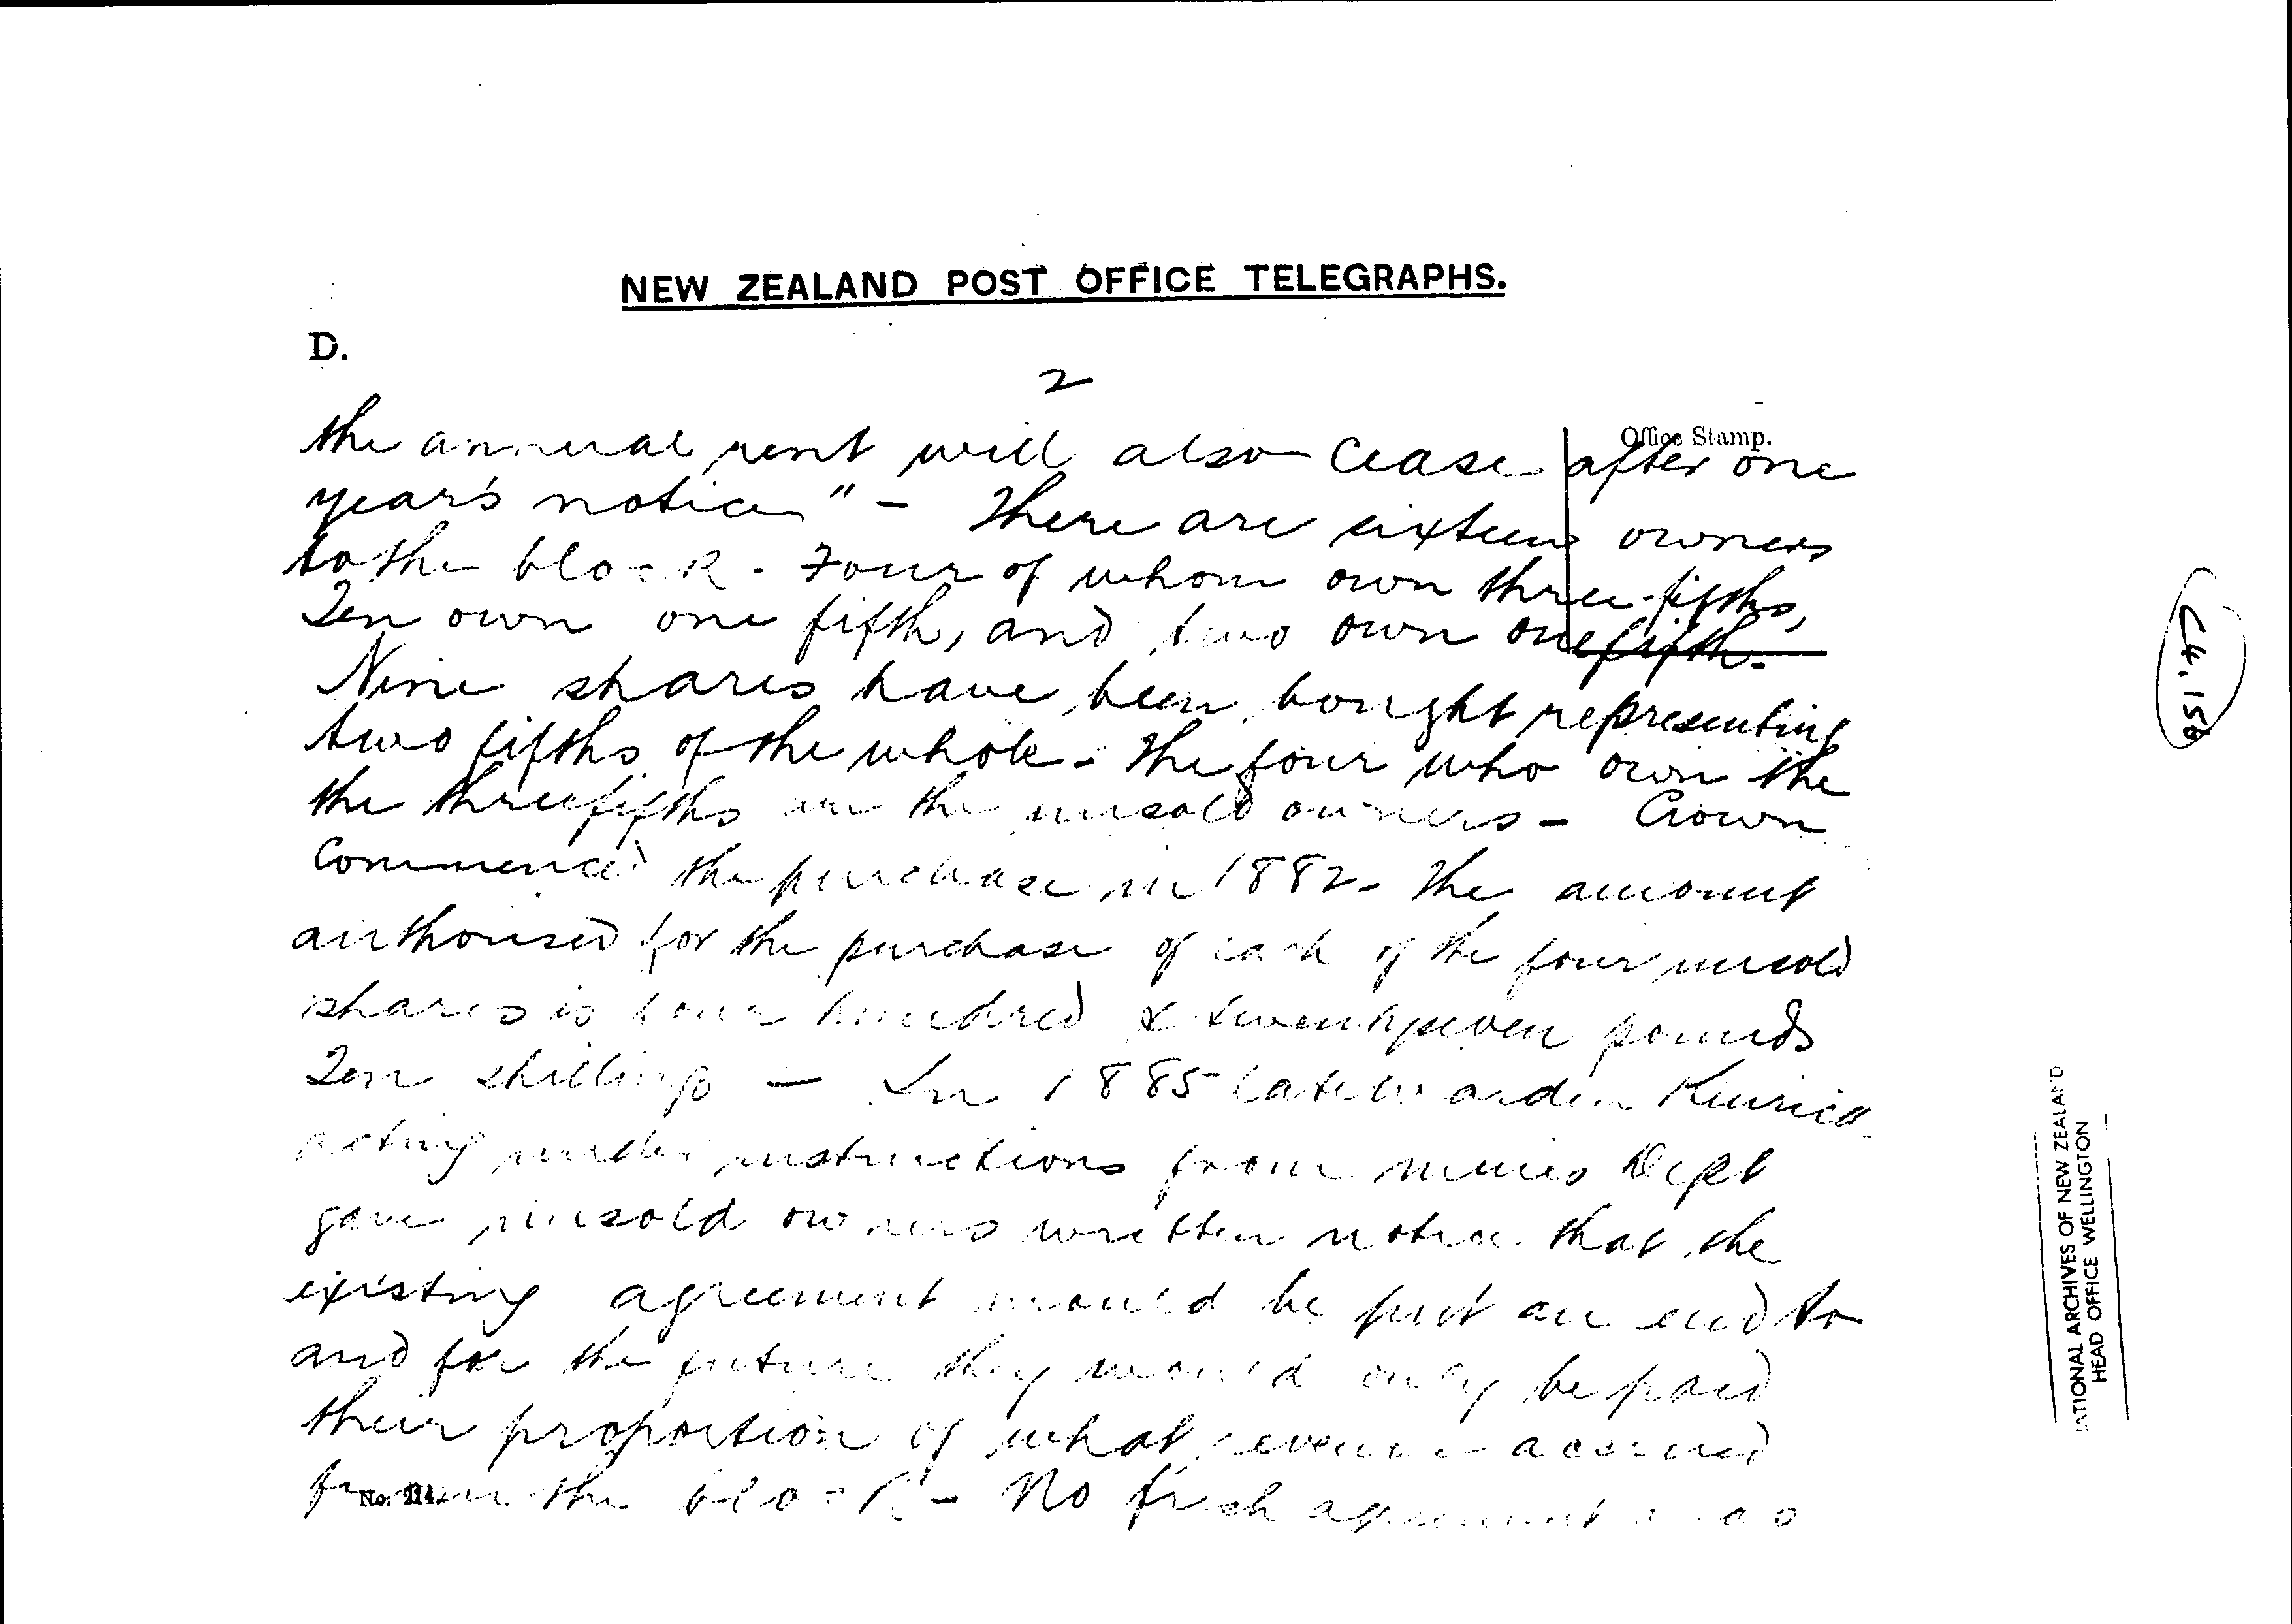 NEW ZEALAND POST OFFICE TELEGRAPHS.
D.
2
Office Stamp.
the annual rent will also cease after one
year's notice" - There are sixteen owners
to the block. Four of whom own three-fifths,
Ten own one fifth, and two own one fifth.
Nine shares have been bought representing
two fifths of the whole - The four who own the
the three fifths are the unsold owners - Crown
Commenced the purchase in 1882 - The amount
authorised for the purchase of each of the four unsold
shares is four hundred & twenty seven pounds
Ten shillings - In 1885 late Warden Kenrick
acting under instructions from mines Dept
gave unsold owners written notice that the
existing agreement would be put an end to
and for the future they would only be paid
their proportion of what revenue accrued
from the block - No fresh agreement was
No. 114.
NATIONAL ARCHIVES OF NEW ZEALAND
HEAD OFFICE WELLINGTON